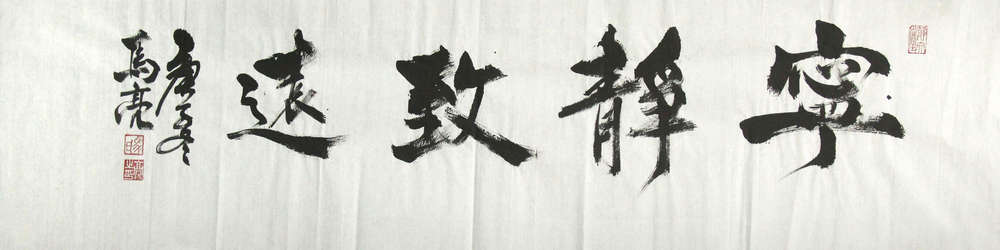 寧靜致遠
庚子冬
馬亮